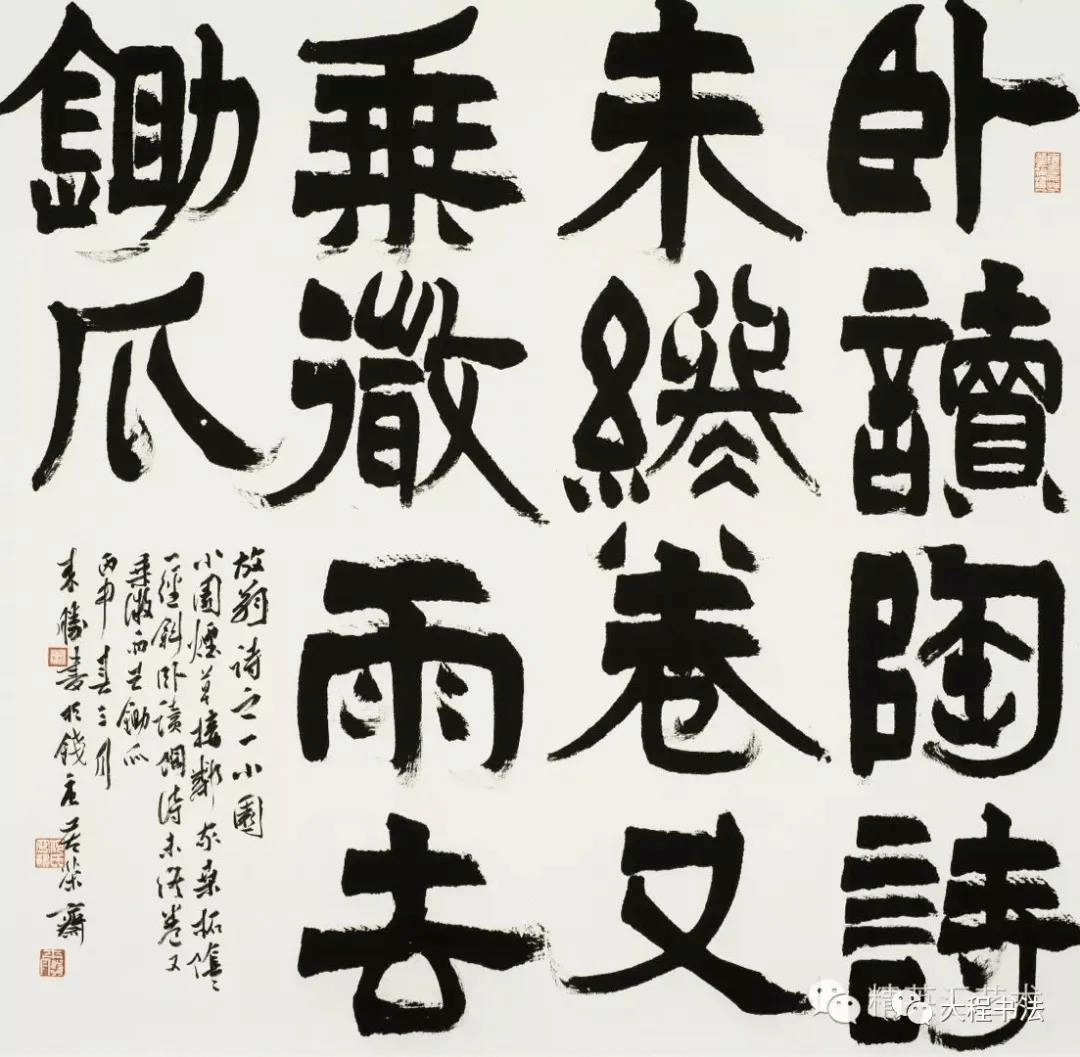 卧讀陶詩
未終卷又
乘微雨去
鋤瓜
放翁詩之一小園
小園煙草接鄰家桑柘陰々
一徑斜卧讀陶詩未終卷又
乘微雨去鋤瓜
丙申春三月
来勝書於錢唐
大程书法